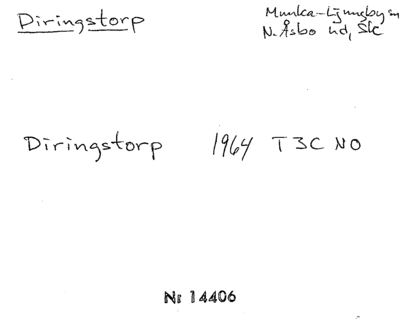 Diringstorp
Munka-Ljungby sn
N. Åsbo hd, Skå
Diringstorp 1964 T3C NO
Nr 14406